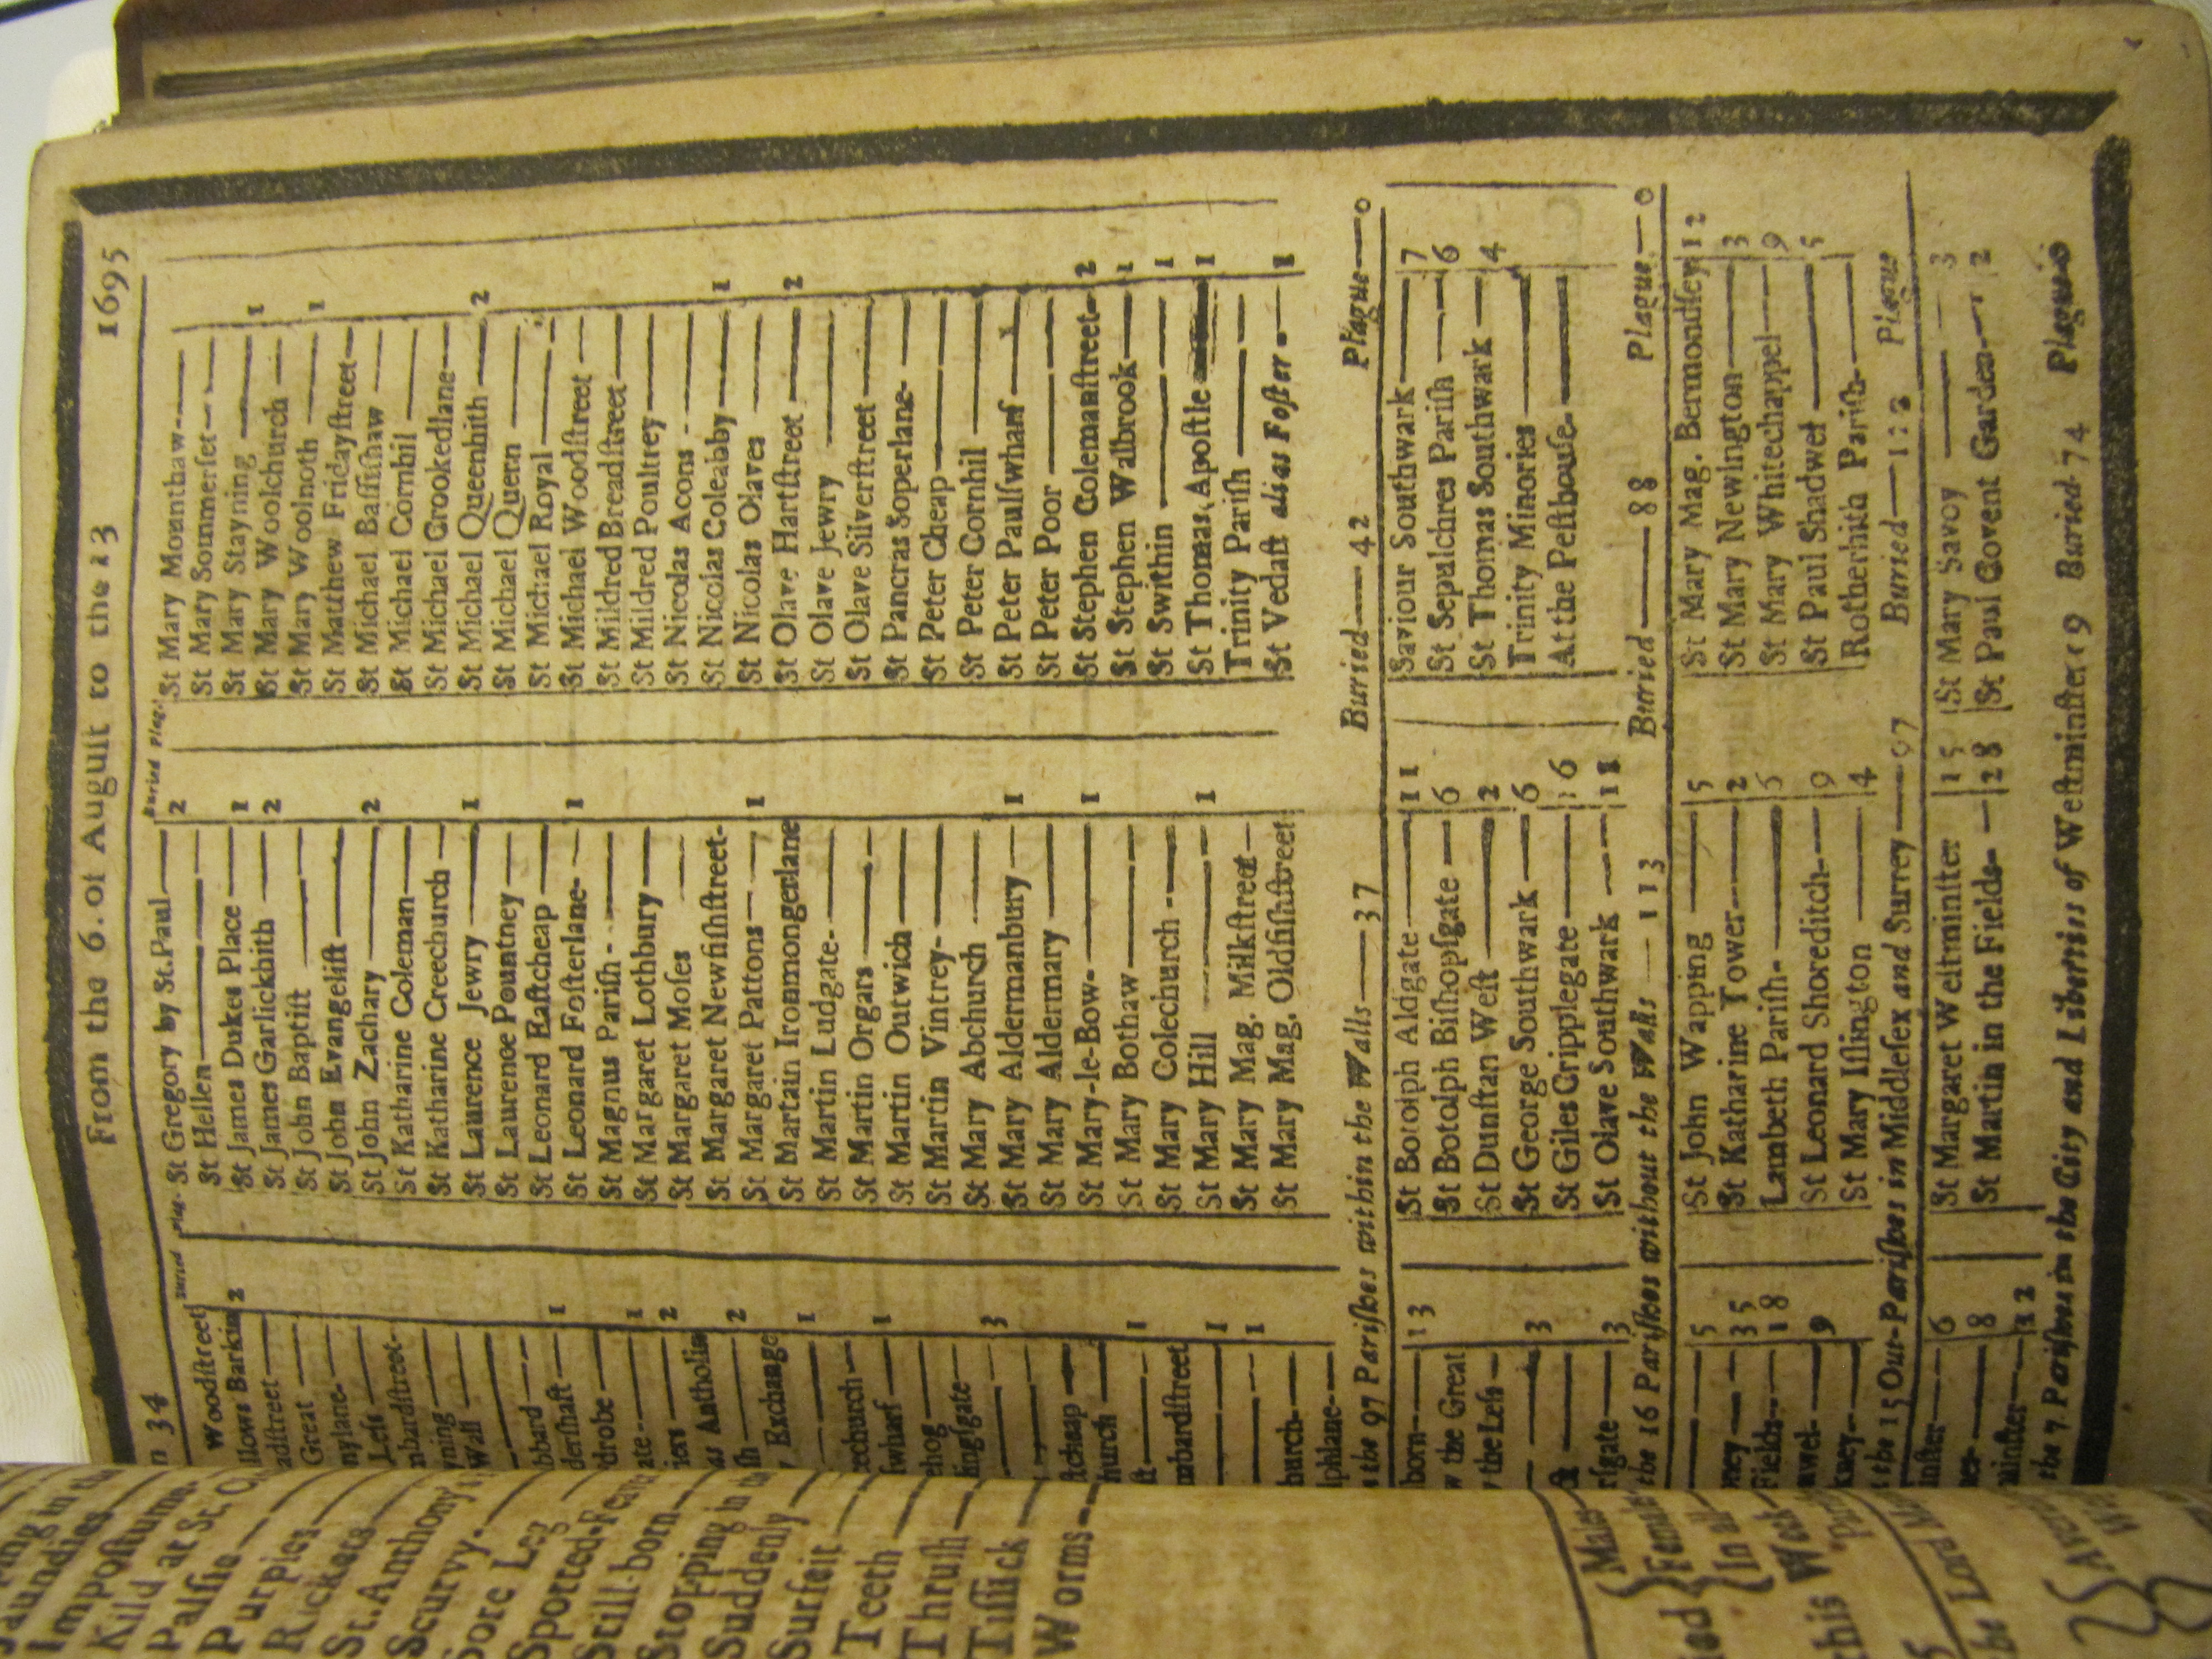 34 From the 6. of August to the 13 1695
Buried Plag. Buried Plag.
Woodſtreet St Gregory by St.Paul 2 St Mary Mounthaw
Barkin 2 St Hellen St Mary Sommerſet
adſtreet St James Dukes Place 1 St Mary Stayning 1
Great St James Garlickhith 2 St Mary Woolchurch
nylane St John Baptiſt St Mary Woolnoth 1
Leſs St John Evangeliſt St Matthew Fridayſtreet
nbardſtreet St John Zachary 2 St Michael Baſſiſhaw
ning St Katharine Coleman St Michael Cornhil
Wall St Katharine Creechurch St Michael Crookedlane
St Laurence Jewry 1 St Michael Queenhith 2
bbard St Laurence Pountney St Michael Quern
derſhaft 1 St Leonard Eaſtcheap St Michael Royal
drobe St Leonard Foſterlane 1 St Michael Woodſtreet
ate 1 St Magnus Pariſh St Mildred Breadſtreet
iers 2 St Margaret Lothbury St Mildred Poultrey
as Antholin St Margaret Moſes St Nicolas Acons
ſh 2 St Margaret Newfiſhſtreet St Nicolas Coleabby 1
Exchange St Margaret Pattons 1 St Nicolas Olaves
1 Martain Ironmongerlane St Olave Hartſtreet 2
eechurch St Martin Ludgate St Olave Jewry
ſwharf 1 St Martin Orgars St Olave Silverſtreet
ehog St Martin Outwich St Pancras Soperlane
lingſgate St Martin Vintrey St Peter Cheap
3 St Mary Abchurch St Peter Cornhil
St Mary Aldermanbury 1 St Peter Paulſwharf
ſtcheap St Mary Aldermary St Peter Poor
hurch St Mary-le-Bow 1 St Stephen Colemanſtreet 2
ſt 1 St Mary Bothaw St Stephen Walbrook 1
mbardſtreet St Mary Colechurch St Swithin 1
1 St Mary Hill 1 St Thomas Apoſtle 1
1 St Mary Mag. Milkſtreet Trinity Pariſh
burch St Mary Mag. Oldfiſhſtreet St Vedaſt alias Foſter 1
lphlane
the 97 Pariſhes within the Walls 37 Buried 42 Plague 0
born 13 St Botolph Aldgate 11 Saviour Southwark 7
the Great St Botolph Biſhopſgate 6 St Sepulchres Pariſh 6
the Leſs St Dunſtan Weſt 2 St Thomas Southwark 4
3 St George Southwark 6 Trinity Minories
St Giles Cripplegate 16 At the Peſthouſe
rſgate 3 St Olave Southwark 18
the 16 Pariſhes without the Walls 113 Buried 88 Plague 0
5 St John Wapping 5 St Mary Mag. Bermondſey 12
ney 35 St Katharine Tower 2 St Mary Newington 3
Fields 18 Lambeth Pariſh St Mary Whitechappel 9
9 St Leonard Shoreditch 9 St Paul Shadwel 5
kney St Mary Iſlington 4 Rotherhith Pariſh
the 15 Out-Pariſhes in Middleſex and Surrey 97 Buried Plague
inſter 6 St Margaret Weſtminſter 15 St Mary Savoy 3
8 St Martin in the Fields 28 St Paul Covent Garden 2
minſter 12
the 7 Pariſhes in the City and Liberties of Weſtminſter Buried 74 Plague 0
Jaundies
Impoſtume
Kild at St.
Palſie
Purples
Rickets
St. Anthony
Scurvy
Sore Leg
Spotted-Fever
Still-born
Stopping in
Suddenly
Surfeit
Teeth
Thruſh
Tiſſick
Worms
Males
Females
In all
this Week
Lord